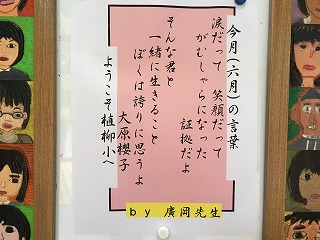 今月(六月)の言葉
涙だって 笑顔だって
がむしゃらになった
証拠だよ
そんな君と
一緒に生きること
ぼくは誇りに思うよ
大原櫻子
ようこそ植柳小へ
by 廣岡先生